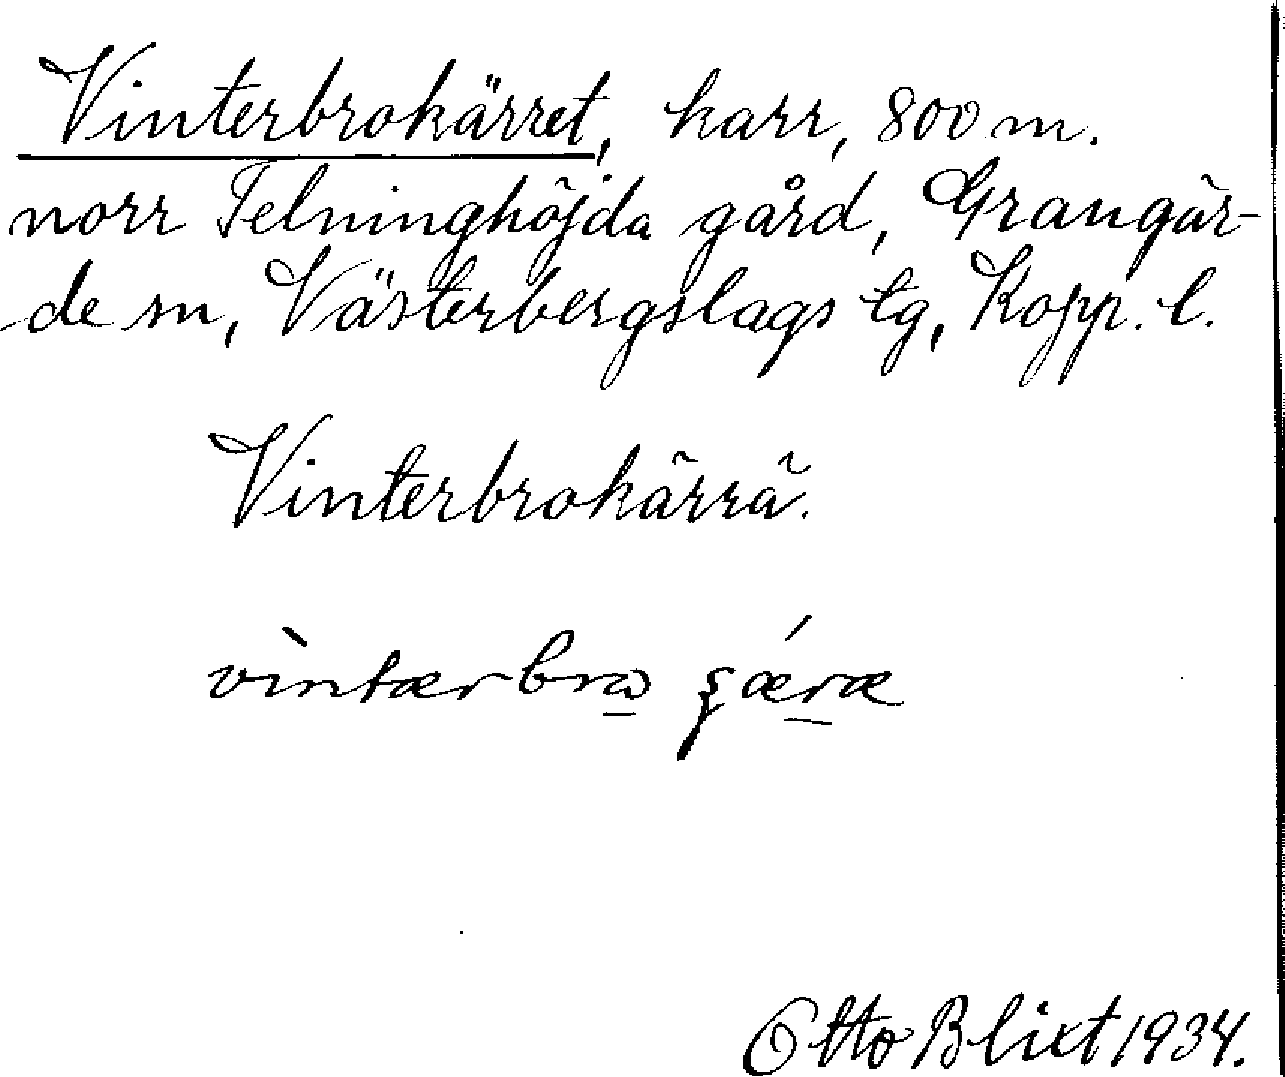 Vinterbrokärret, karr, 800 m.
norr Felninghöjda gård, Grangär-
de sn, Västerbergslags tg, Kopp. l.
Vinterbrokärrä.
Otto Blixt 1934.